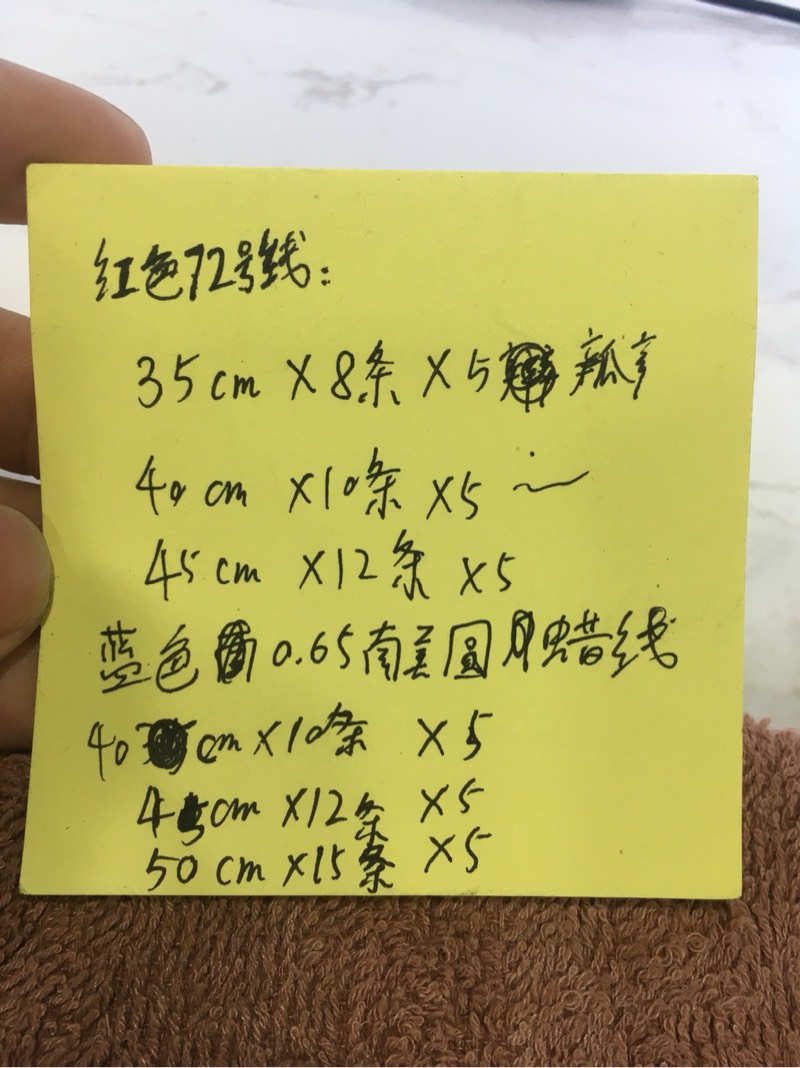 红色72号线:
35cm×8条×5瓣
40cm×10条×5~
45cm×12条×5
蓝色0.65南美圆蜡线
40cm×10条×5
45cm×12条×5
50cm×15条×5